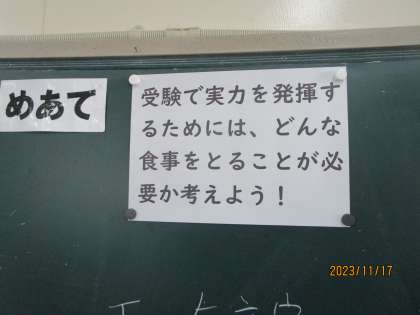 めあて
受験で実力を発揮す
るためには、どんな
食事をとることが必
要か考えよう！
2023/11/17